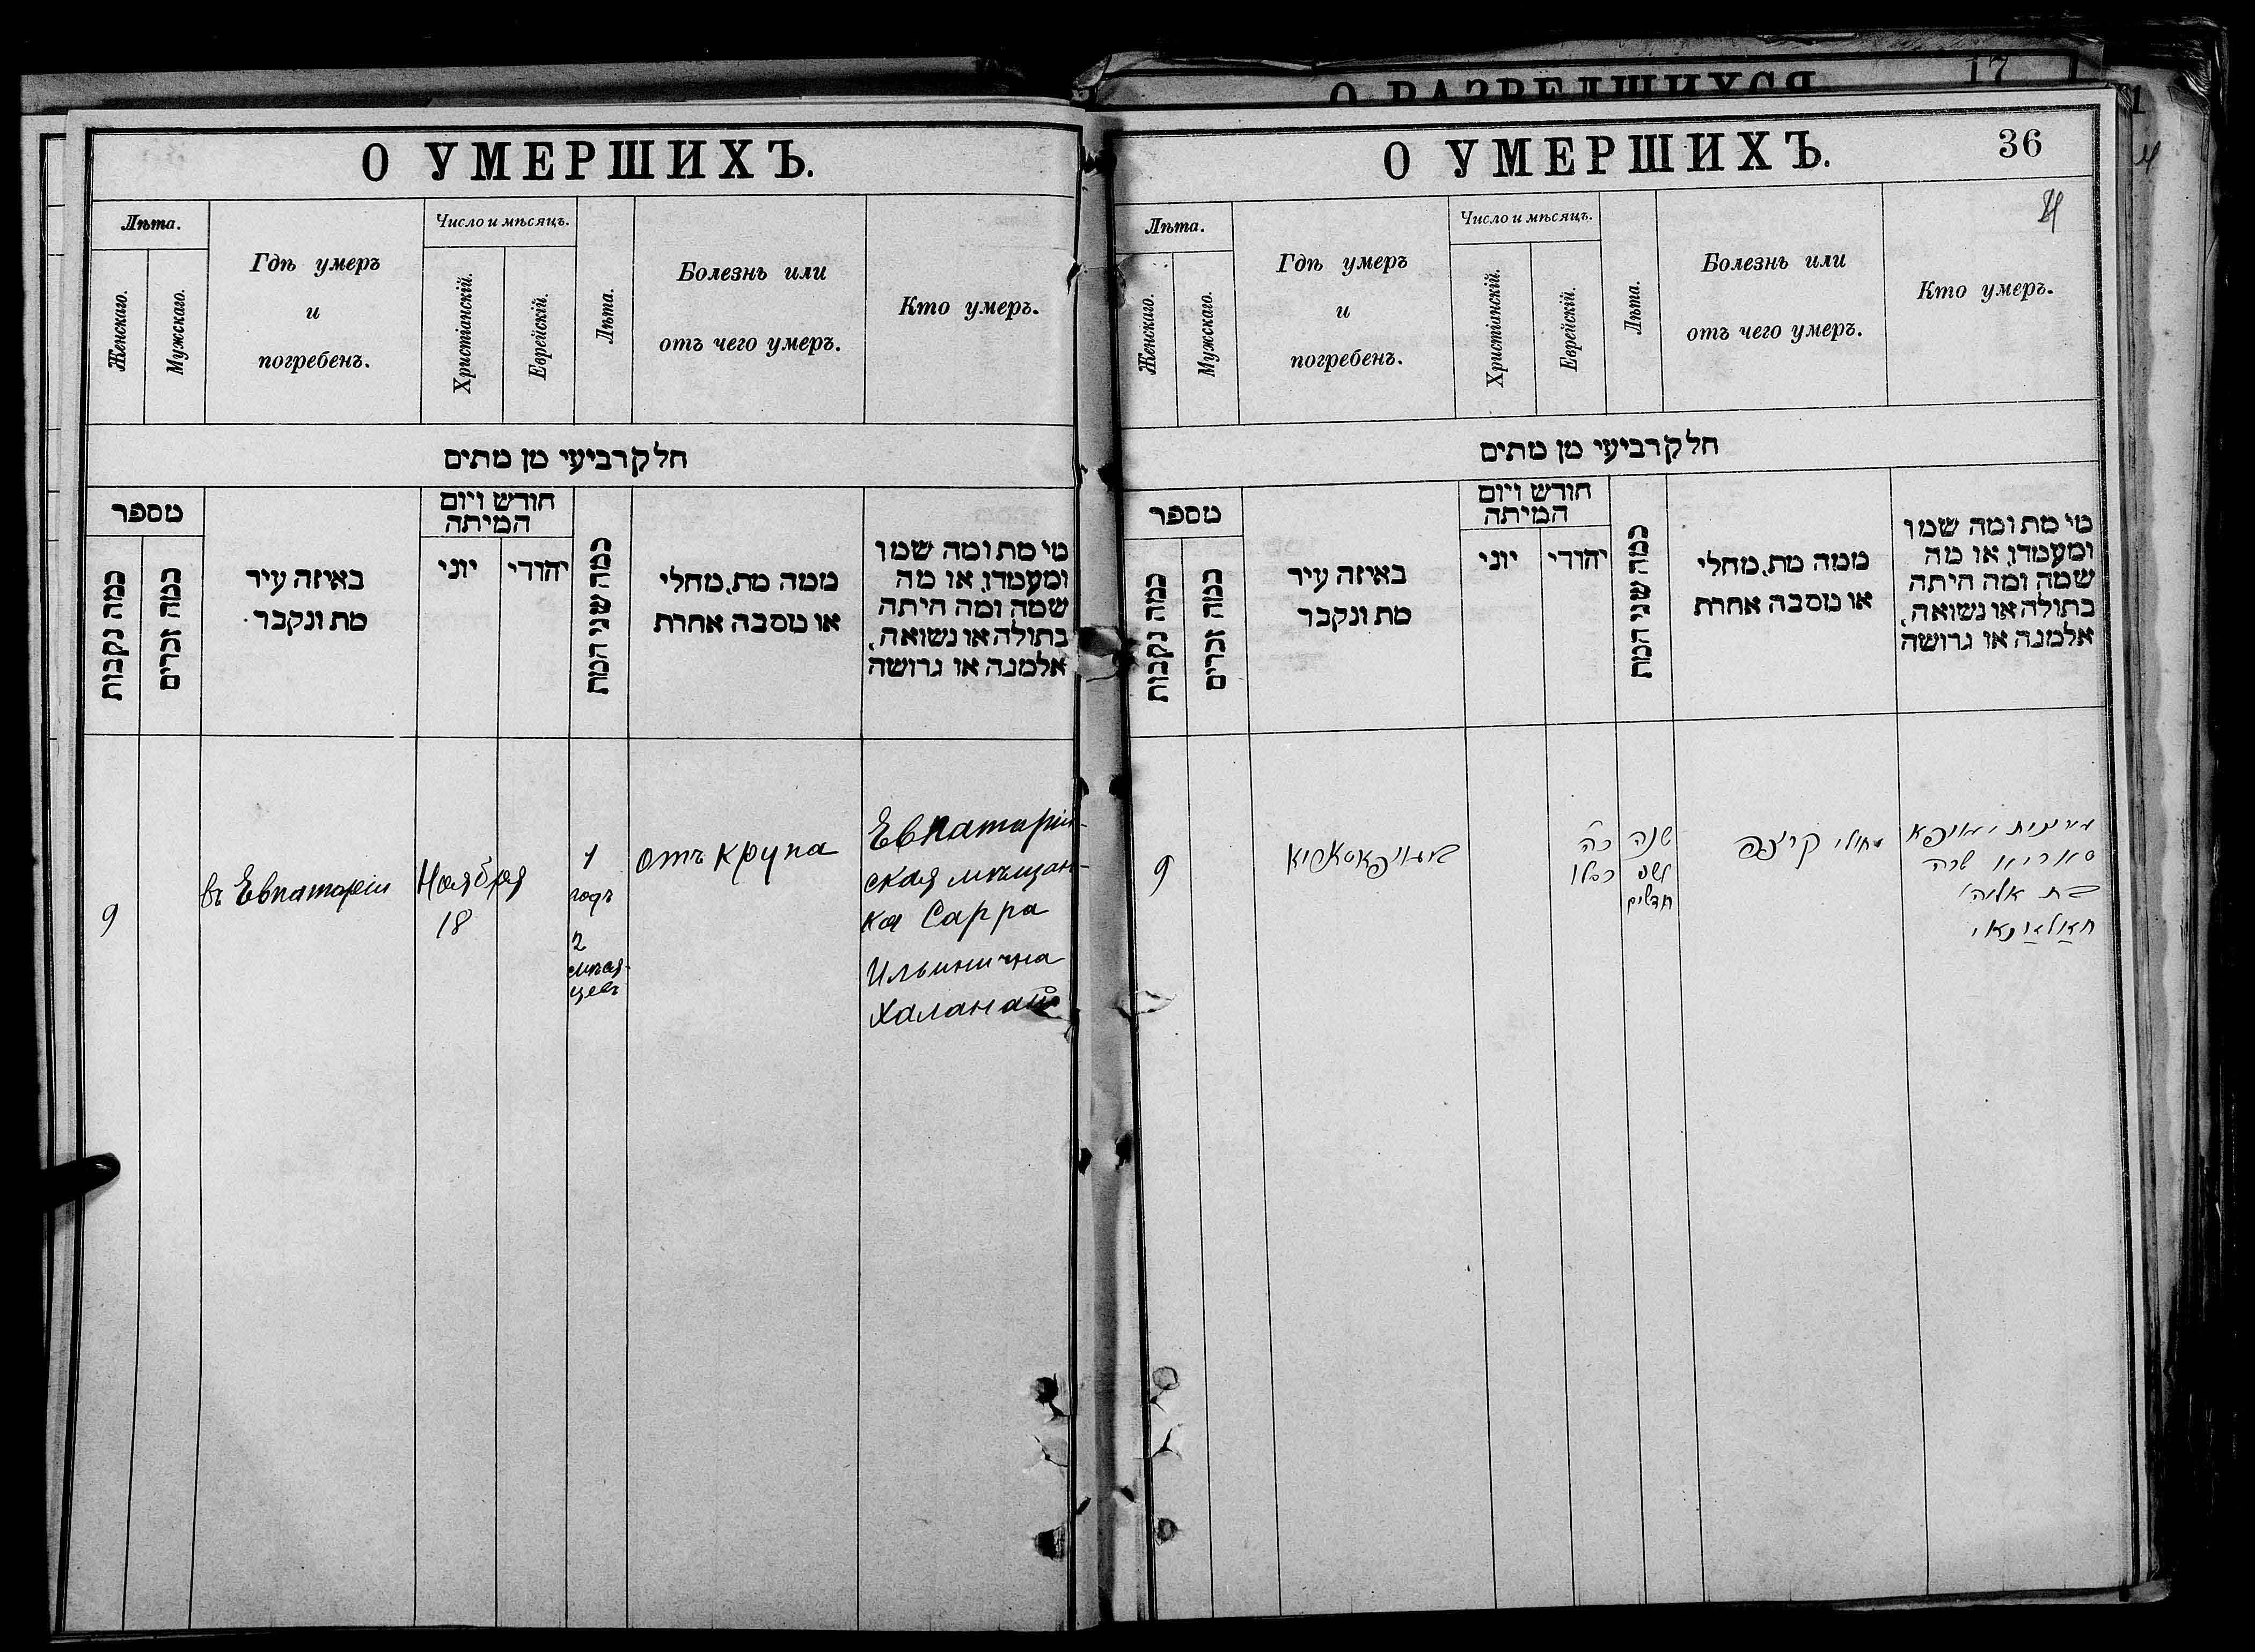 О УМЕРШИХЪ.
Лѣта.
Женскаго.
Мужскаго.
Гдѣ умеръ
и
погребенъ.
Число и мѣсяцъ.
Христіанскій.
Еврейскій.
Лѣта.
Болезнь или
отъ чего умеръ.
Кто умеръ.
חלק רביעי מן מתים
מספר
כמה נקבות
כמה זכרים
באיזה עיר
מת ונקבר
חודש ויום
המיתה
יוני
יהודי
כמה שני המת
ממה מת, מחלי
או מסבה אחרת
מי מת ומה שמו
ומעמדו, או מה
שמה ומה היתה
בתולה או נשואה,
אלמנה או גרושה
9
въ Евпаторіи
Ноября
18
1
годъ
2
мѣся-
цевъ
отъ крупа
Евпаторій-
ская мѣщан-
ка Сарра
Ильинична
Халанай
О РАЗВЕДШИХСЯ
17
О УМЕРШИХЪ.
36
Лѣта.
Женскаго.
Мужскаго.
Гдѣ умеръ
и
погребенъ.
Число и мѣсяцъ.
Христіанскій.
Еврейскій.
Лѣта.
Болезнь или
отъ чего умеръ.
Кто умеръ.
חלק רביעי מן מתים
מספר
כמה נקבות
כמה זכרים
באיזה עיר
מת ונקבר
חודש ויום
המיתה
יוני
יהודי
כמה שני המת
ממה מת, מחלי
או מסבה אחרת
מי מת ומה שמו
ומעמדו, או מה
שמה ומה היתה
בתולה או נשואה,
אלמנה או גרושה
9
כה
כסלו
שנה
ושני
חדשים
מחולי
שרה
בת אליהו